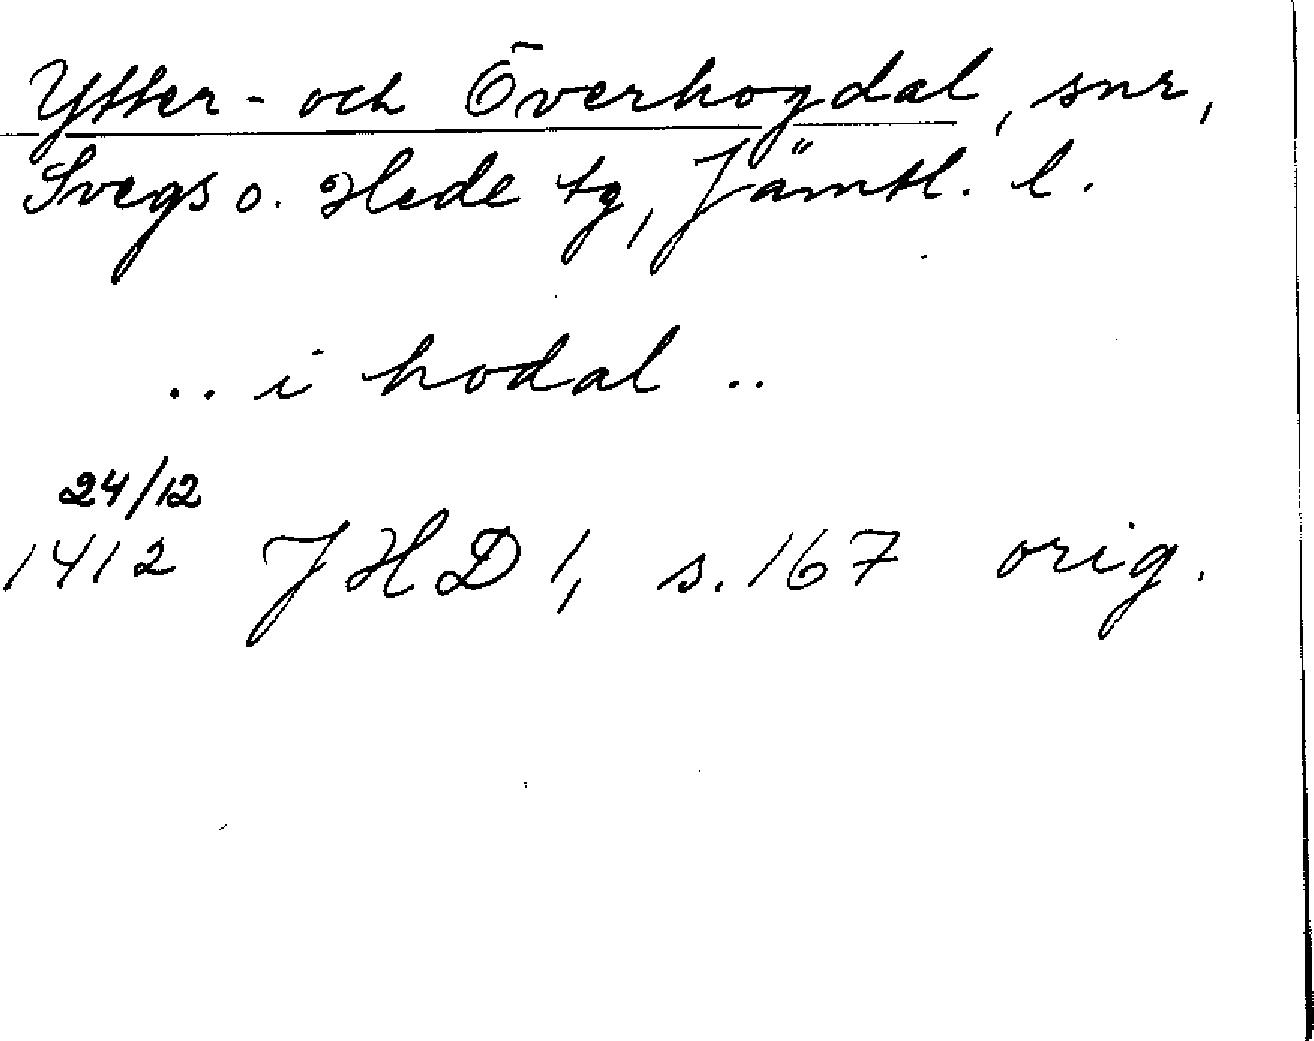 Ytter- och Överhogdal, snr,
Svegs o. Hede tg, Jämtl. l.
.. i hodal ..
24/12
1412 JHD 1, s. 167 orig.